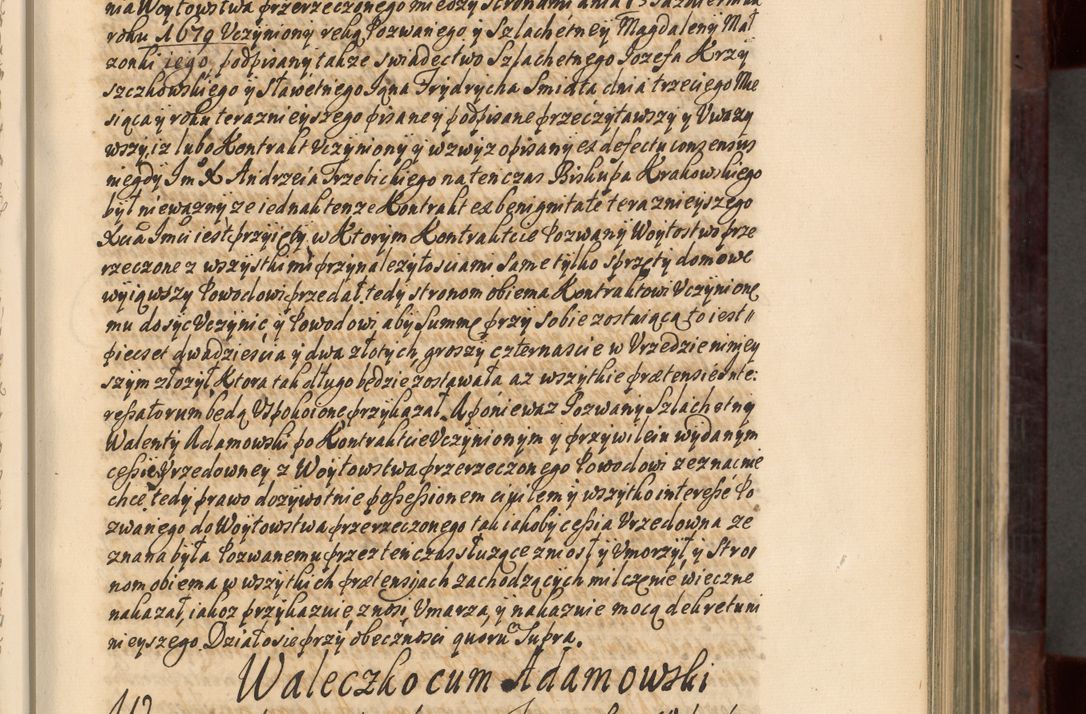 nia Woytowstwa przerzeczonego między stronami dnia 13 Października
roku 1679 Uczyniony ręką Pozwanego y Szlachetney Magdaleny Mał
zonki iego, podpisany także swiadectwo Szlachetnego Iozefa Krzy
szczkowskiego y Sławetnego Iana Frydrycha Smidta dnia trzeciego Mie
siąca y roku teraznieyszego pisane y podpisane przeczytawszy y Uwazy
wszy, iz lubo Kontrakt Uczyniony y wzwyz opisany ex defectu consensus
niegdy Im X Andrzeia Trzebickiego na tenczas Biskupa Krakowskiego
był niewazny ze iednak tenze Kontrakt ex benignitate teraznieyszego
Xcia Imci iest przyięty, w Ktorym Kontraktcie Pozwany Woytostwo prze
rzeczone z wszystkimi przynalezytosciami same tylko sprzęty domowe
wyiąwszy Powodowi przedał, tedy stronom obiema Kontraktowi Uczynione
mu dosyc Uczynic y Powodowi aby Summę przy sobie zostaiącą to iest
pięcset dwadziescia y dwa złotych, groszy czternascie w Urzedzie niniey
szym złozył Ktora tak długo będzie zostawała az wszytkie prætensie Inte:
ressatorum będą Uspokoione przykazał. A poniewaz Pozwany Szlachetny
Walenty Adamowski po Kontraktcie Uczynionym y przywileiu wydanym
cessie Urzedowney z Woytowstwa przerzeczonego Powodowi zeznac nie
chce, tedy prawo dozywotnie possessionem civilem y wszytko interesse Po
zwanego do Woytowstwa przerzeczonego tak iakoby cessia Urzedowna ze
znana była Pozwanemu przez ten czas słuzące zniosł y Umorzył y Stro
nom obiema w wszytkich prætensyach zachodzących milczenie wieczne
nakazał, iakoz przykazuie, znosi, Umarza, y nakazuie mocą dekretu ni
nieyszego. Działo się przy obecznosci quorū Supra.
Waleczko cum Adamowski